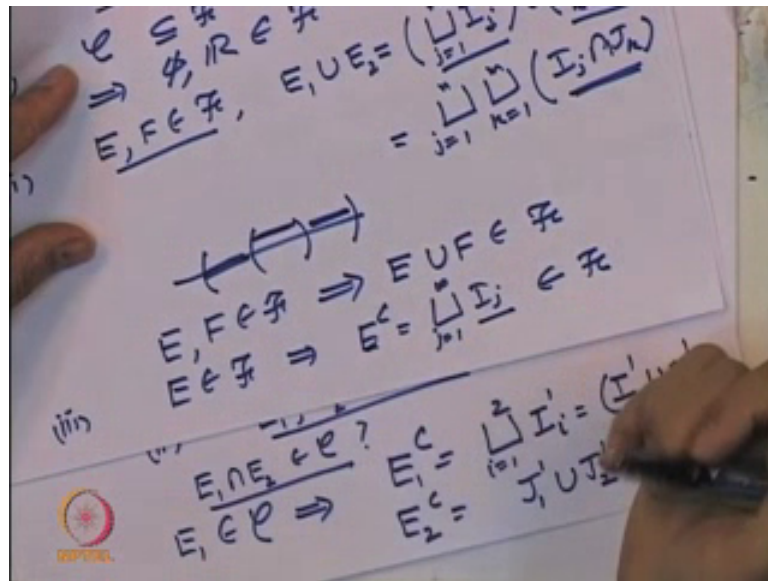 𝒞 ⊆ ℱ
⇒ ϕ, ℝ ∈ ℱ
E, F ∈ ℱ, E₁ ∪ E₂ = (⊔ⁿⱼ₌₁ Iⱼ)
= ⊔ⁿⱼ₌₁ ⊔ⁿₖ₌₁ (Iⱼ ∩ Jₖ)
E, F ∈ ℱ ⇒ E ∪ F ∈ ℱ
(iii) E ∈ ℱ ⇒ Eᶜ = ⊔ⁿⱼ₌₁ Iⱼ ∈ ℱ
E₁ ∩ E₂ ∈ 𝒞 ?
E₁ ∈ 𝒞 ⇒ E₁ᶜ = ⊔²ᵢ₌₁ I'ᵢ = (I'
E₂ᶜ = J'₁ ∪ J'₂
NPTEL